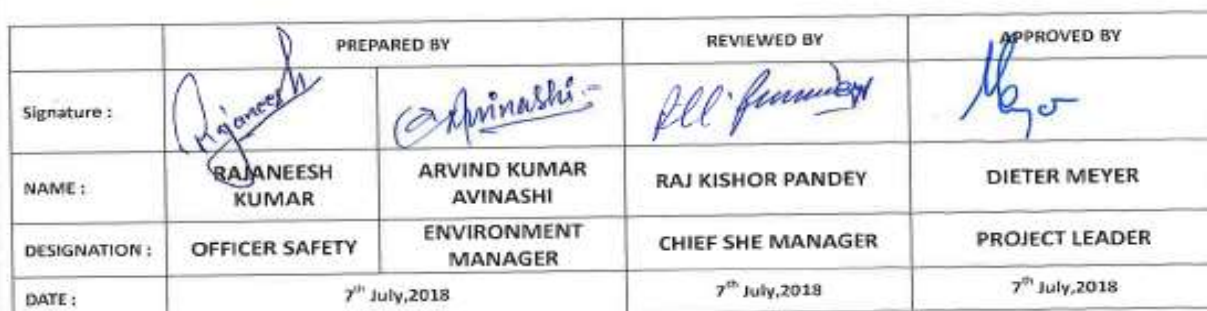 PREPARED BY REVIEWED BY APPROVED BY
Signature : Rajaneesh Avinashi
NAME : RAJANEESH KUMAR ARVIND KUMAR AVINASHI RAJ KISHOR PANDEY DIETER MEYER
DESIGNATION : OFFICER SAFETY ENVIRONMENT MANAGER CHIEF SHE MANAGER PROJECT LEADER
DATE : 7th July,2018 7th July,2018 7th July,2018